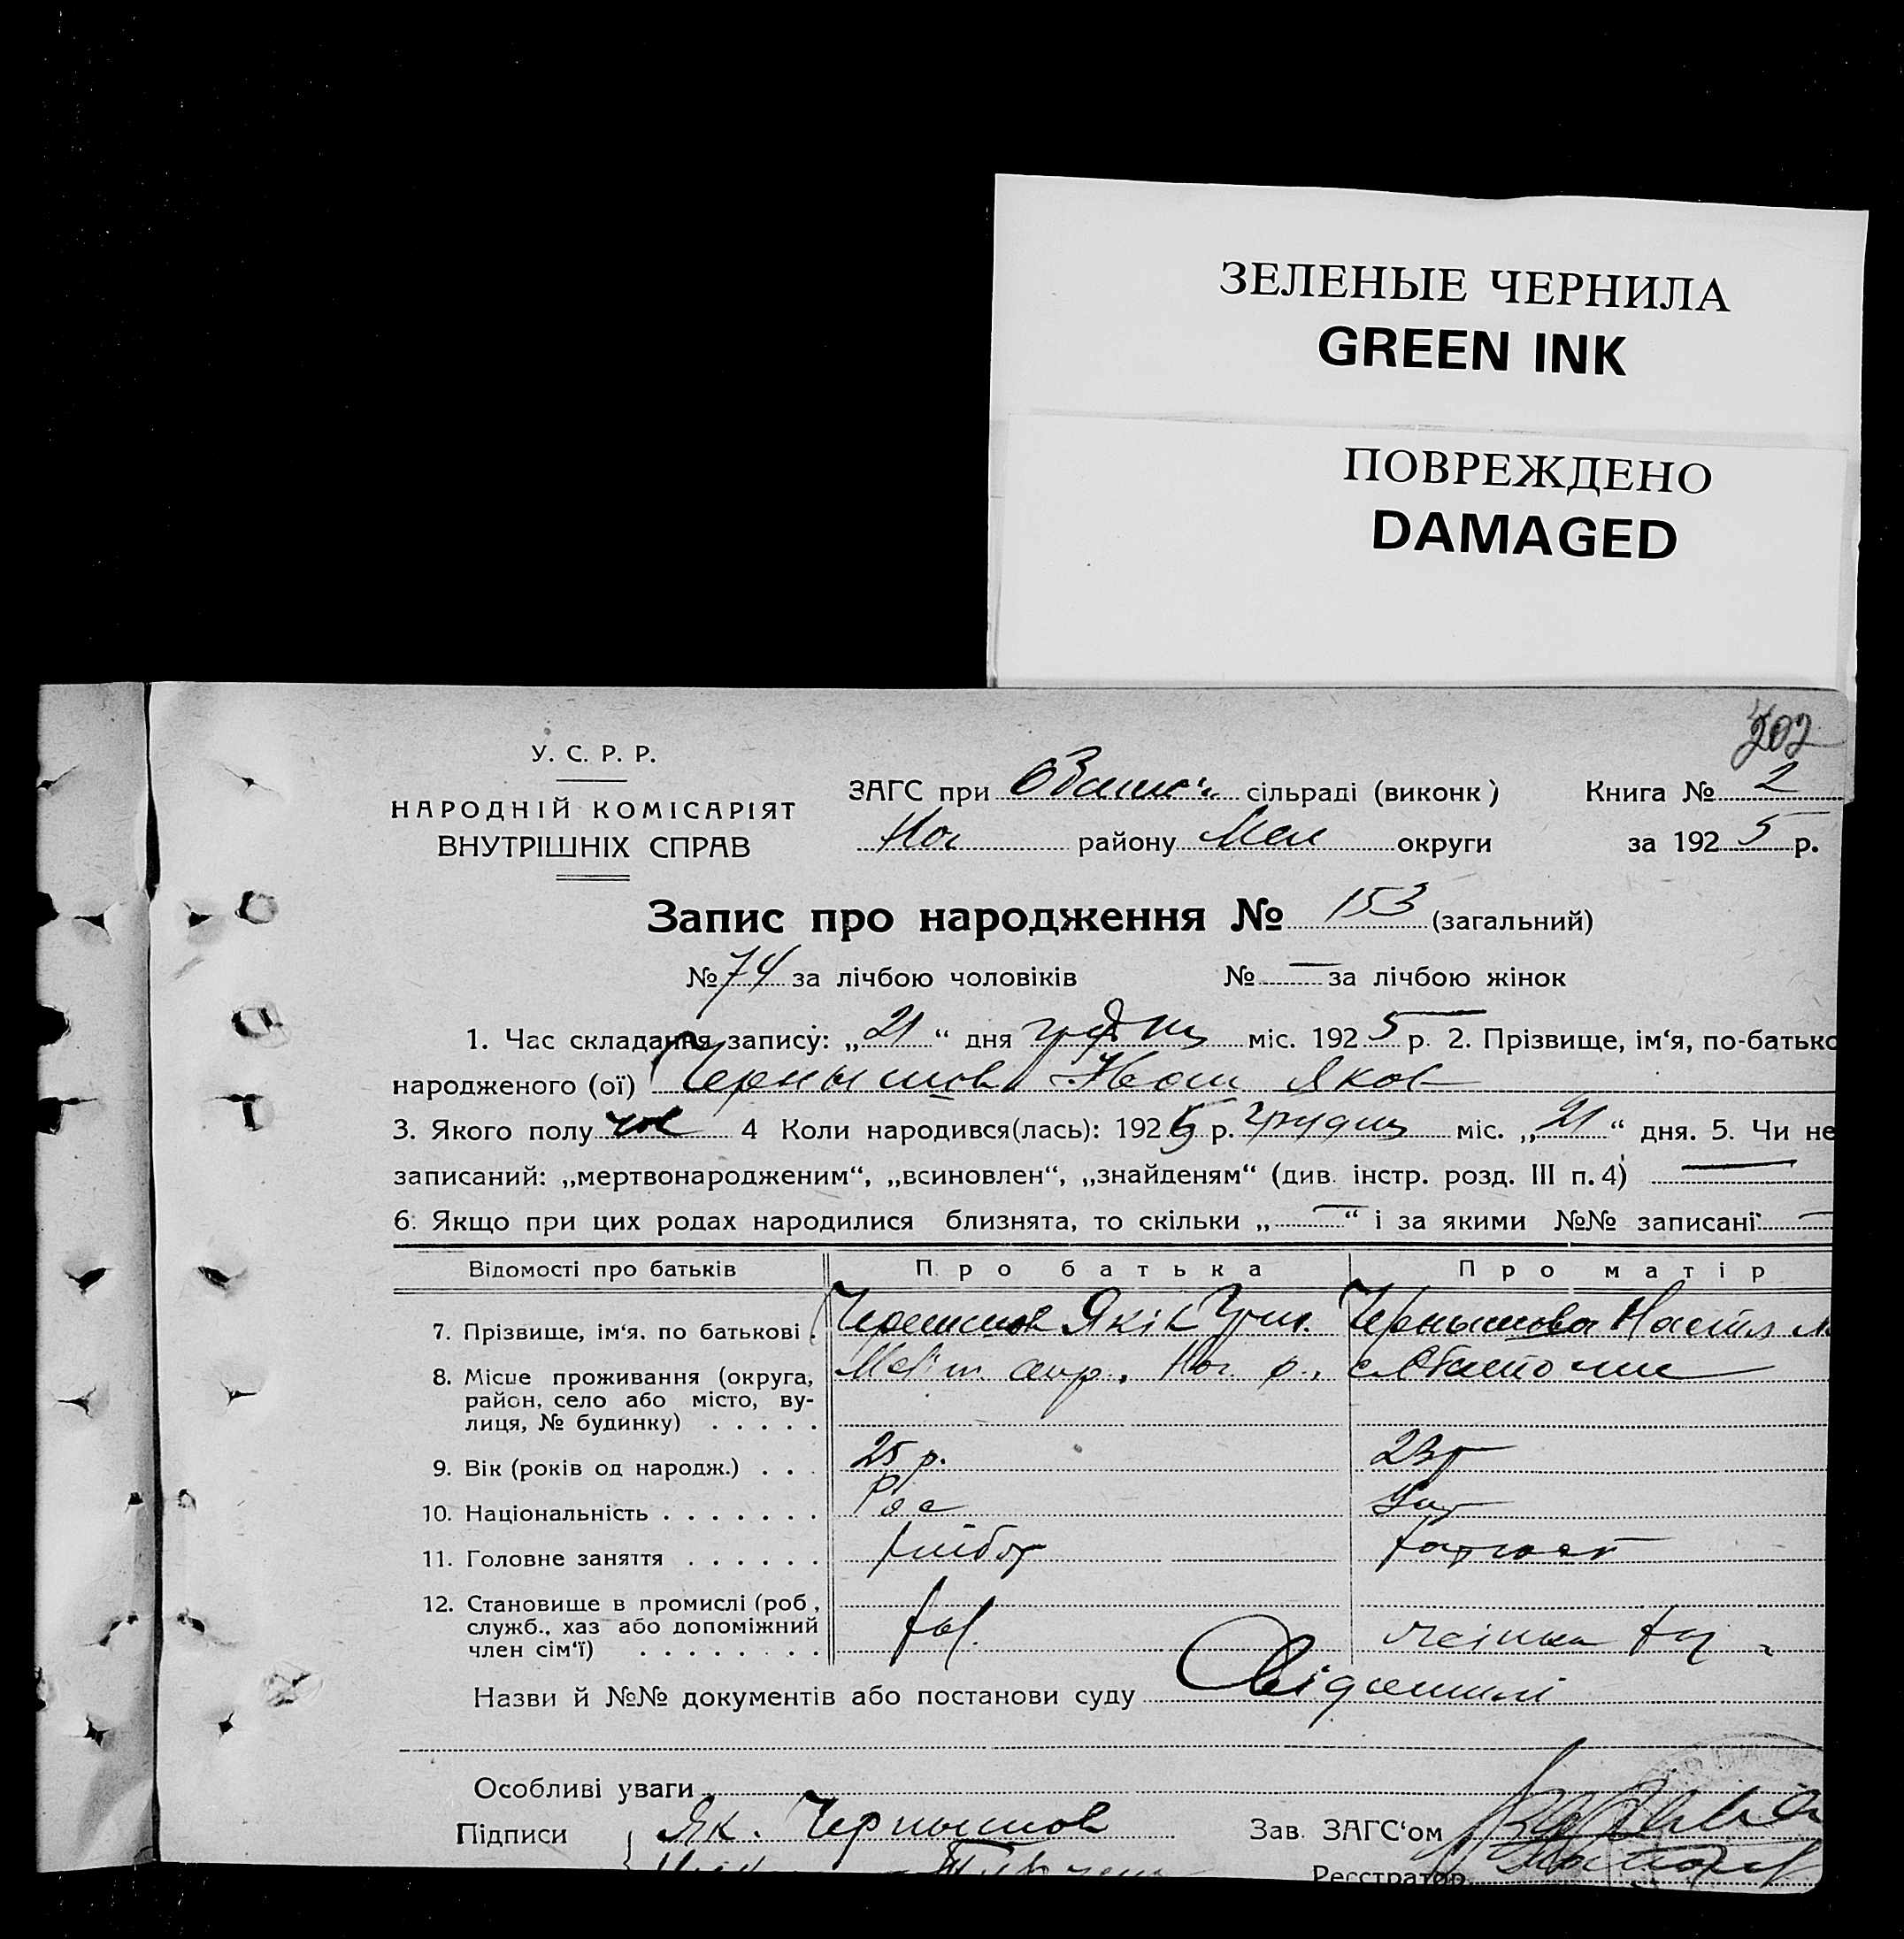 ЗЕЛЕНЫЕ ЧЕРНИЛА
GREEN INK
ПОВРЕЖДЕНО
DAMAGED
202
У. С. Р. Р.
НАРОДНІЙ КОМІСАРІЯТ
ВНУТРІШНІХ СПРАВ
ЗАГС при сільраді (виконк)
Книга № 2
Ног району Мел округи
за 1925 р.
Запис про народження № 153 (загальний)
№ 74 за лічбою чоловіків № — за лічбою жінок
1. Час складання запису: „21“ дня грудня міс. 1925 р. 2. Прізвище, ім‘я, по-батько
народженого (ої) Чернышов Яков
3. Якого полу чол 4 Коли народився(лась): 1925 р. грудня міс. „21“ дня. 5. Чи не
записаний: „мертвонародженим“, „всиновлен“, „знайденям“ (див. інстр. розд. III п. 4) —
6. Якщо при цих родах народилися близнята, то скільки „—“ і за якими №№ записані: —
Відомості про батьків
Про батька
Про матір
7. Прізвище, ім‘я, по батькові . Чернишов Яків Григ. Чернышова Настя
8. Місце проживання (округа, Меліт. окр., Ног. р., с.
район, село або місто, ву-
лиця, № будинку) . . . . .
9. Вік (років од народж.) . . . 25 р. 23 р
10. Національність . . . . . . . Рос Укр
11. Головне заняття . . . . . . хлібор
12. Становище в промислі (роб,
служб., хаз або допоміжний
член сім‘ї) . . . . . . . . хаз.
Назви й №№ документів або постанови суду
Особливі уваги
Підписи Як. Чернышов
Зав. ЗАГС‘ом
Реєстратор